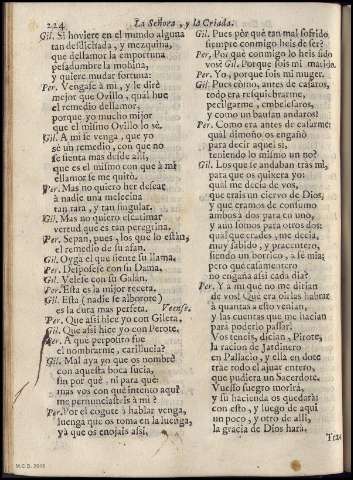 224
La Señora, y la Criada.
Gil. Si hoviere en el mundo alguna
tan desdichada, y mezquina,
que dellamor la emportuna
pesadumbre la mohina,
y quiere mudar fortuna:
Per. Vengase à mi, y le diré
mejor que Ovillo, qual hue
el remedio dellamor,
porque yo mucho mijor
que el mismo Ovillo lo sé.
Gil. A mi se venga, que yo
sè un remedio, con que no
se sienta mas desde alli,
que es el mismo con que à mi
ellamor se me quitò.
Per. Mas no quiero her desear
à nadie una melecina
tan rara, y tan singular.
Gil. Mas no quiero dilatimar
vertud que es tan peregrina.
Per. Sepan, pues, los que lo están,
el remedio de su afan.
Gil. Oyga el que siente su llama,
Per. Desposese con su Dama.
Gil. Velese con su Galan.
Per. Esta es la mijor receta.
Gil. Esta (nadie se alborote)
es la cura mas perfeta. Vense.
Per. Que assi hice yo con Gileta.
Gil. Que assi hice yo con Perote.
Per. A que perposito fue
el nombrarme, carillucia?
Gil. Mal aya yo que os nombré
con aquesta boca sucia,
sin por què, ni para què:
mas vos con què intento aqui
me pernunciasteis à mi?
Per. Por el cogote à hablar venga,
luenga que os toma en la luenga,
yà que os enojais assi.
Gil. Pues por què tan mal sofrido
siempre conmigo heis de ser?
Per. Por què conmigo lo heis sido
vos? Gil. Porque sois mi marido.
Per. Yo, porque sois mi muger.
Gil. Pues còmo, antes de casaros,
todo era resquiebrarme,
pecilgarme, embelesaros,
y como un baulsan andaros?
Per. Como era antes de casarme:
qual dimoño os engañò
para decir aquel si,
teniendo lo mismo un no?
Gil. Los que se andaban tràs mi,
para que os quixera yo:
qual me decia de vos,
que erais un ciervo de Dios,
y que eramos de consumo
ambos à dos para en uno,
y aun fomos para otros dos:
qual que erades, me decia,
muy sabido, y pracentero,
siendo un borrico, à fe mia;
pero què casamentero
no engaña assi cada dia?
Per. Y à mi què no me dirian
de vos! Què era oirlas habrar
à quantas a esto venian,
y las cuentas que me hacian
para poderlo passar!
Vos teneis, dician, Pirote,
la racion de Jardinero
en Pallacio, y ella en dote
trae todo el ajuar entero,
que pudiera un Sacerdote.
Vuesso suegro morirá,
y su hacienda os quedará:
con esto, y luego de aqui
un poco, y otro de alli,
la gracia de Dios hará.
M.C.D. 2015